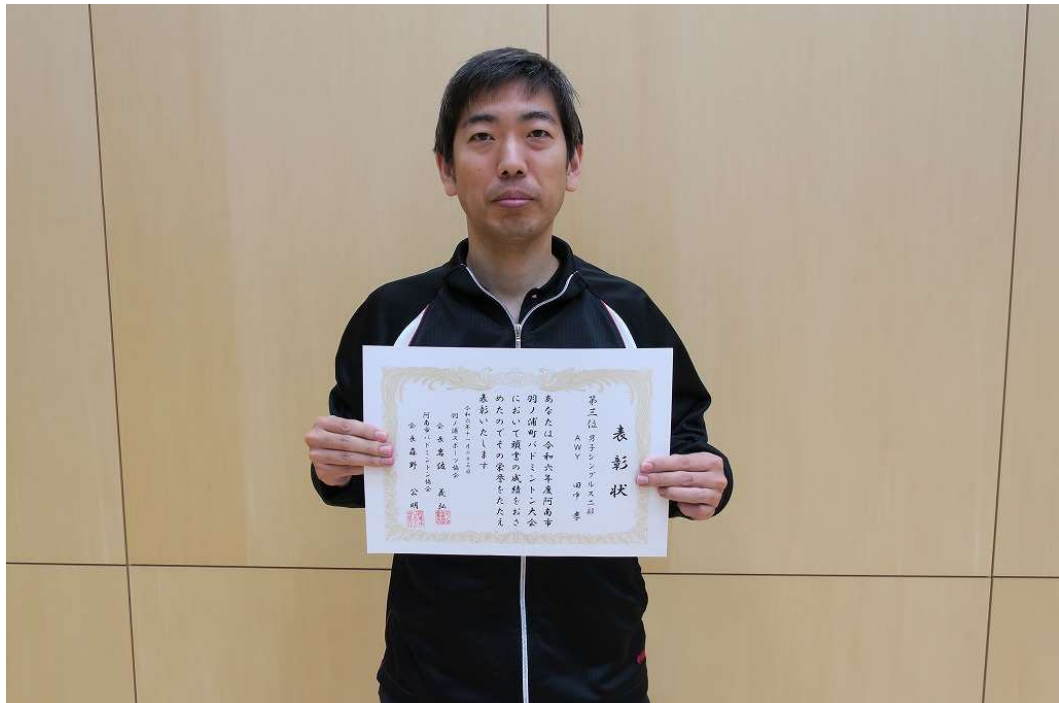 表彰状
第三位 男子シングルス二部
AWY 田中 孝
あなたは令和六年度阿南市
羽ノ浦町バドミントン大会
において頭書の成績をおさ
めたのでその栄誉をたたえ
表彰いたします
令和六年十一月二十三日
羽ノ浦スポーツ協会
会長 岩佐 義弘
阿南市バドミントン協会
会長 森野 公明